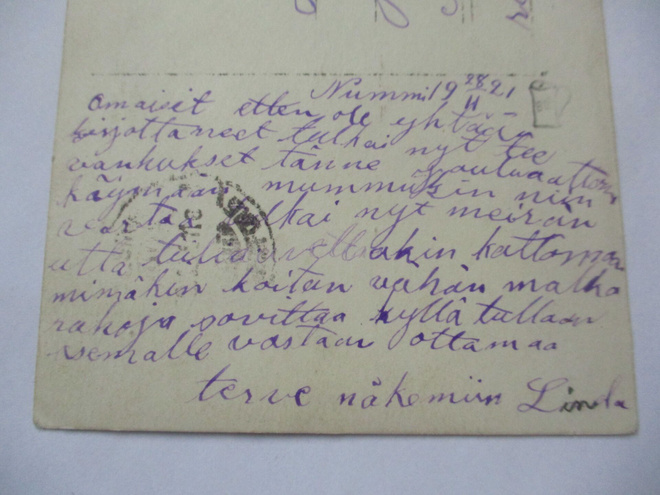 Nummi 19 28/11 21
omaiset etten ole yhtään
kirjottaneet tulkai nyt tee
vanhukset tänne joulunattona
käymään mummukin niin
tulkai nyt meirän
utta kattoman
minäkin koitan vähän matka
rahoja sovittaa kyllä tullaan
asemalle vastaan ottamaa
terve näkemiin Linda